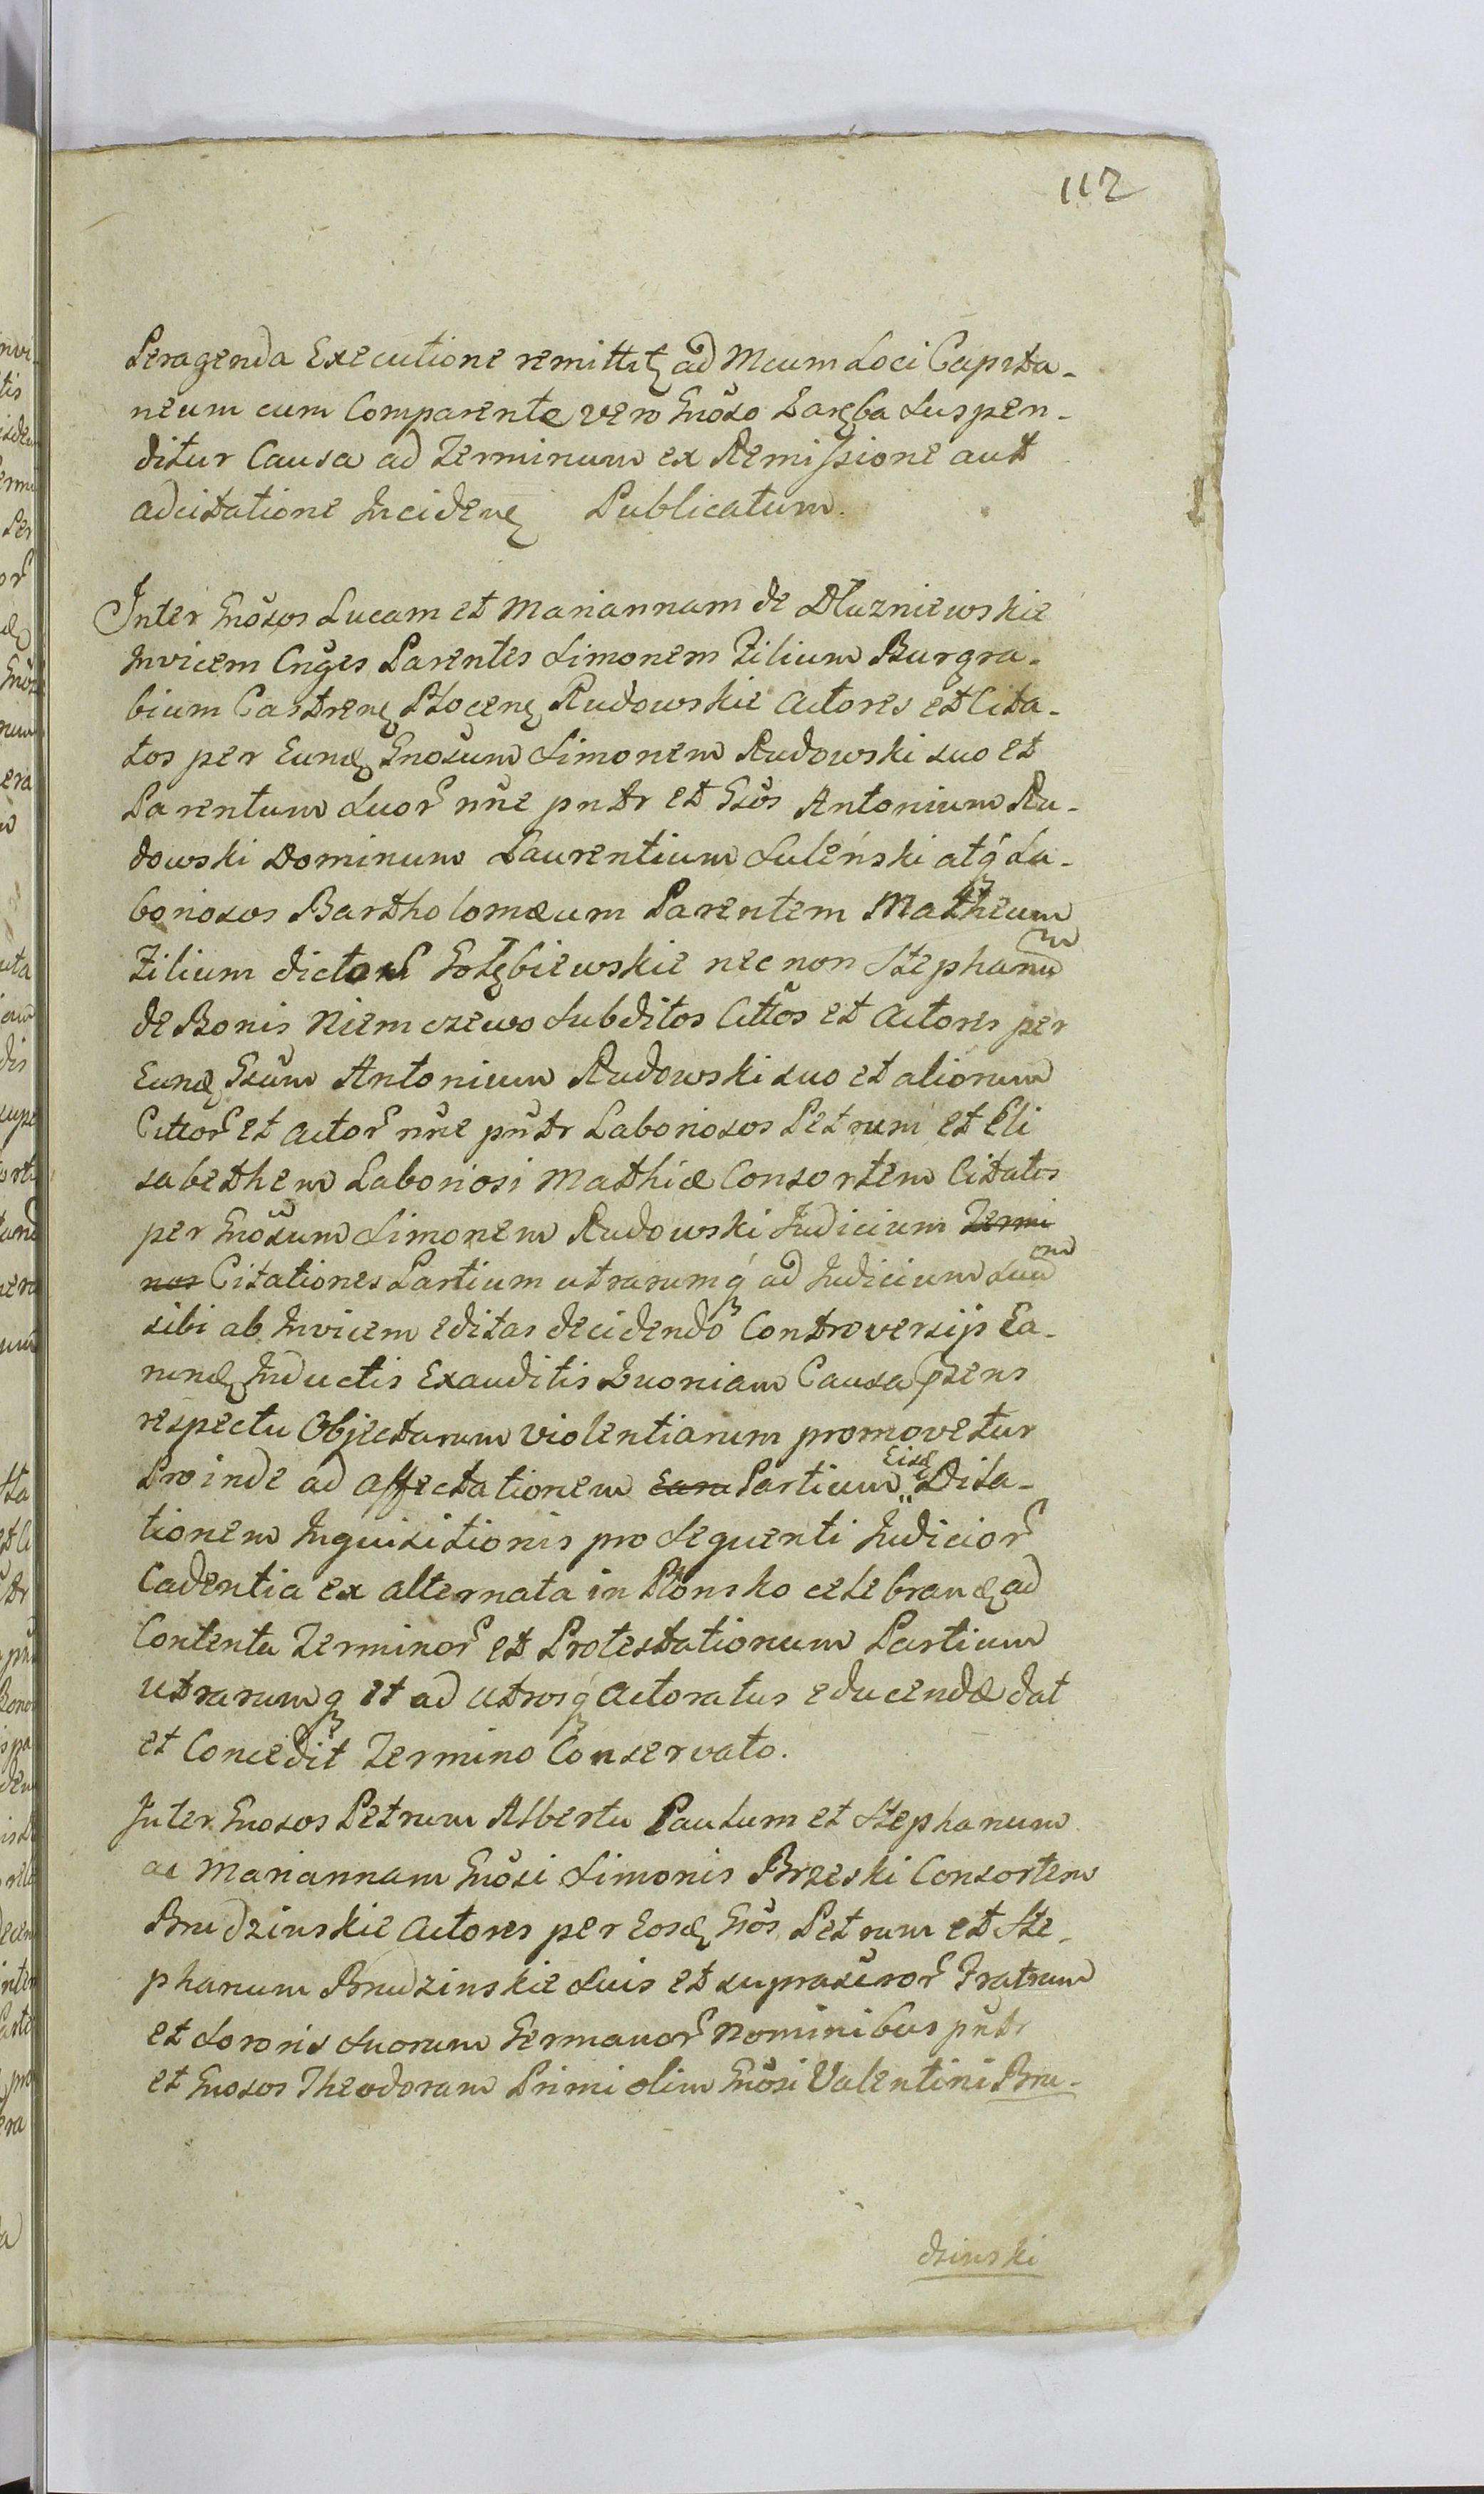 112
Peragenda Executione remittitę ad Mcum Loci Capita-
neum cum Comparente vero Gnoso Zaręba suspen-
ditur Causa ad Terminum ex Remissione aut
adcitatione Incidenę Publicatum.
Inter Gnosos Lucam et Mariannam de Dłuzniewskie
Invicem Cnges Parentes Simonem Filium Burgra-
bium Castrenę Plocenę Rudowskie Actores et Cita-
tos per Eundę Gnosum Simonem Rudowski suo et
Parentum Suor nne pntr et Gsos Antonium Ru-
dowski Dominum Laurentium Suleński atq La-
boriosos Bartholomæum Parentem Matheum
Filium dictos Gołębiewskie nec non Stephanum
de Bonis Niemczewo Subditos Cittos et Actores per
Eundę Gsum Antonium Rudowski suo et aliorum
Cittor et Actor nne pntr Laboriosos Petrum et Eli
sabethem Laboriosi Mathiæ Consortem Citatos
per Gnosum Simonem Rudowski Judicium Termi
nos Citationes Partium utrarumq ad Judicium Suum
sibi ab Invicem editas decidendo Controversijs Ea-
rundę Inductis Exauditis Quoniam Causa psens
respectu Objectarum violentiarum promovetur
Proinde ad affectationem Earu Partium Eisdę Dila-
tionem Inquisitionis pro Sequenti Judicior
Cadentia ex alternata in Płonsko celebrandę ad
Contenta Terminor et Protestationum Partium
utrarumq et ad utrosq Actoratus educendæ dat
et Concedit Termino Conservato.
Inter Gnosos Petrum Albertu Paulum et Stephanum
ac Mariannam Gnosi Simonis Brzeski Consortem
Brudzinskie Actores per Eosdę Gnos Petrum et Ste-
phanum Brudzinskie Suis et suprascror Fratrum
et Sororis Suorum Germanor Nominibus pntr
et Gnosos Theodoram Primi olim Gnosi Valentini Bru-
dzinski